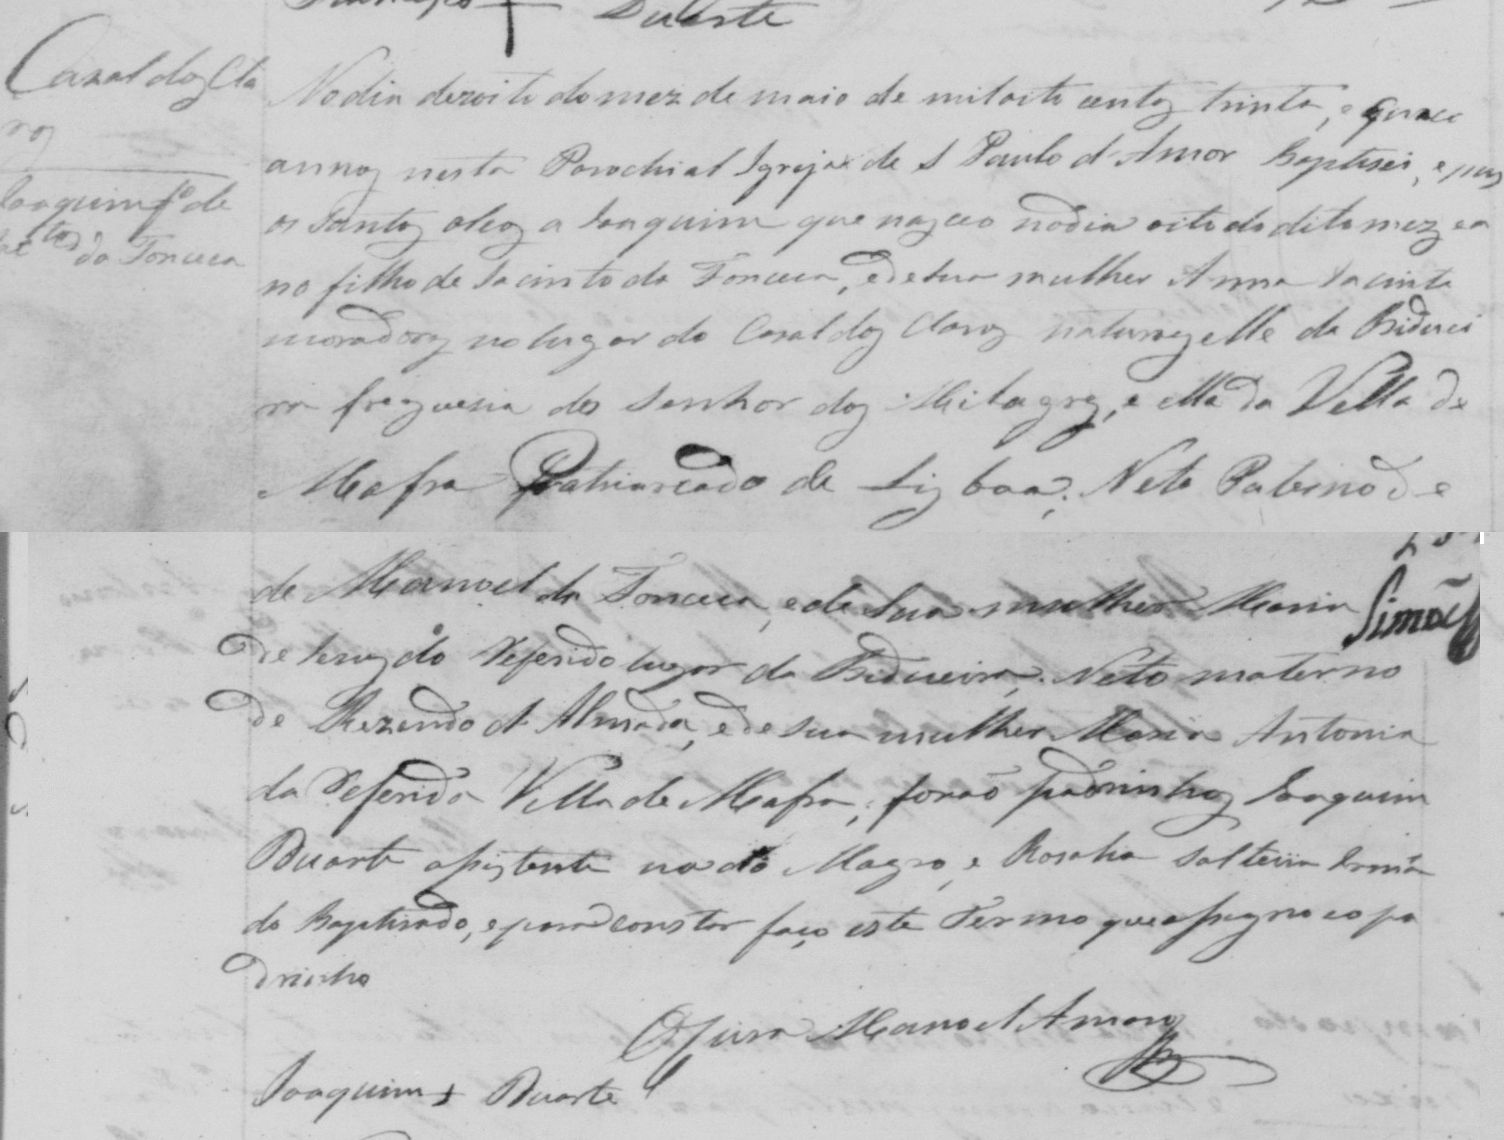 Francisco + Duarte
Casal dos Cla
ros
Joaquim f.º de
Jac.to da Fonceca
No dia dezoito do mez de maio de mil oito centos trinta, e quatro
annos nesta Parochial Igreja de S Paulo d Amor Baptisei, e pus
os Santos oleos a Joaquim que nasceo no dia oito do dito mez e a
no filho de Jacinto da Fonceca, e de sua mulher Anna Jacinta
moradores no lugar do Casal dos Claros naturaes elle da Biduei
ra freguesia do Senhor dos Milagres, e ella da Villa de
Mafra Patriarcado de Lisboa; Neto Paterno de
de Manoel da Fonceca, e de Sua mulher Maria
Simões
de Jesus do Referido lugar da Bidueira; Neto materno
de Rezendo d Almada, e de sua mulher Maria Antonia
da Referida Villa de Mafra; forão padrinhos Joaquim
Duarte assistente no do Magro, e Rosalia Solteira Irmã
do Baptisado, e para constar faço este Termo que assigno e o pa
drinho
O Cura Manoel Amaro
Joaquim + Duarte